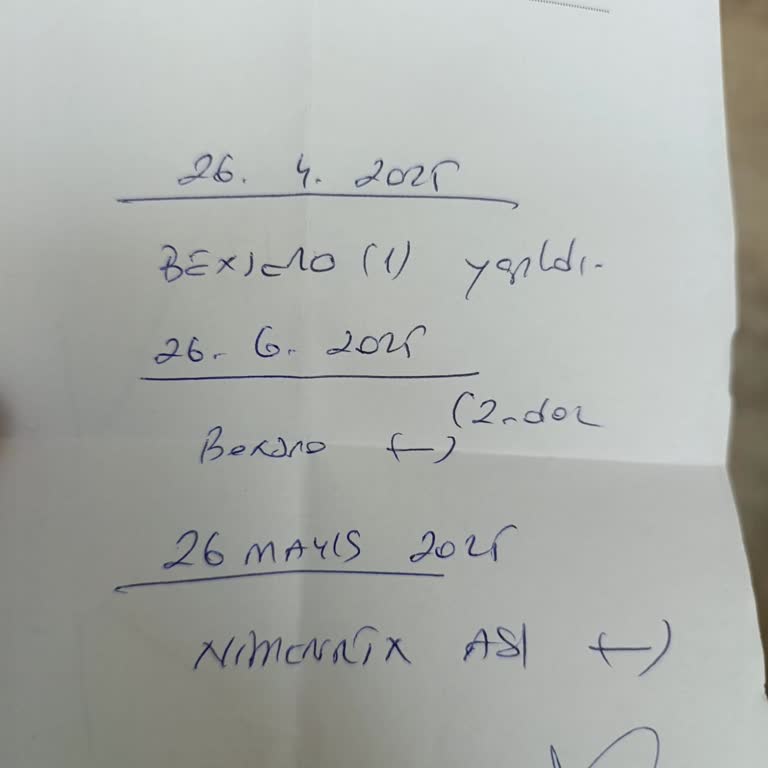 26. 4. 2025
BEXSERO (1) yapıldı.
26. 6. 2025
(2.doz
Bexsero (-)
26 MAYIS 2025
NiMENRiX ASI (-)